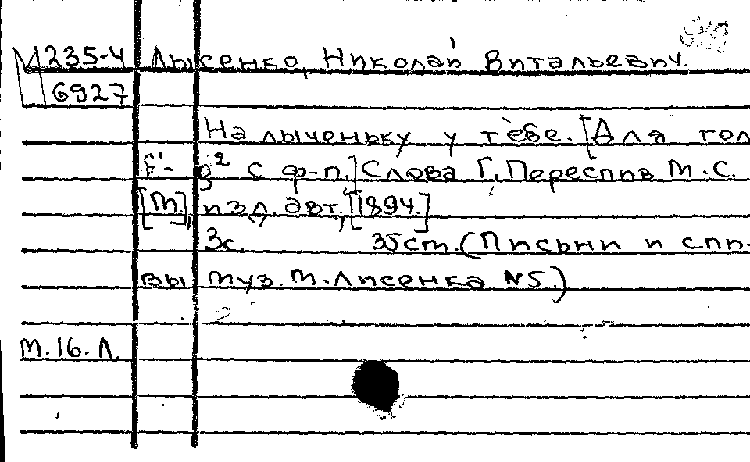 М 235-4 Лысенко, Николай Витальевич.
6927
На лыченьку у тебе. [Для гол
f'- g² с ф-п.] Слова Г. Переспів М.С.
[М.], изд. авт., [1894.]
3с. 35 cm. (Письни и спи-
вы муз. М. Лисенка №5.)
М.16.Л.